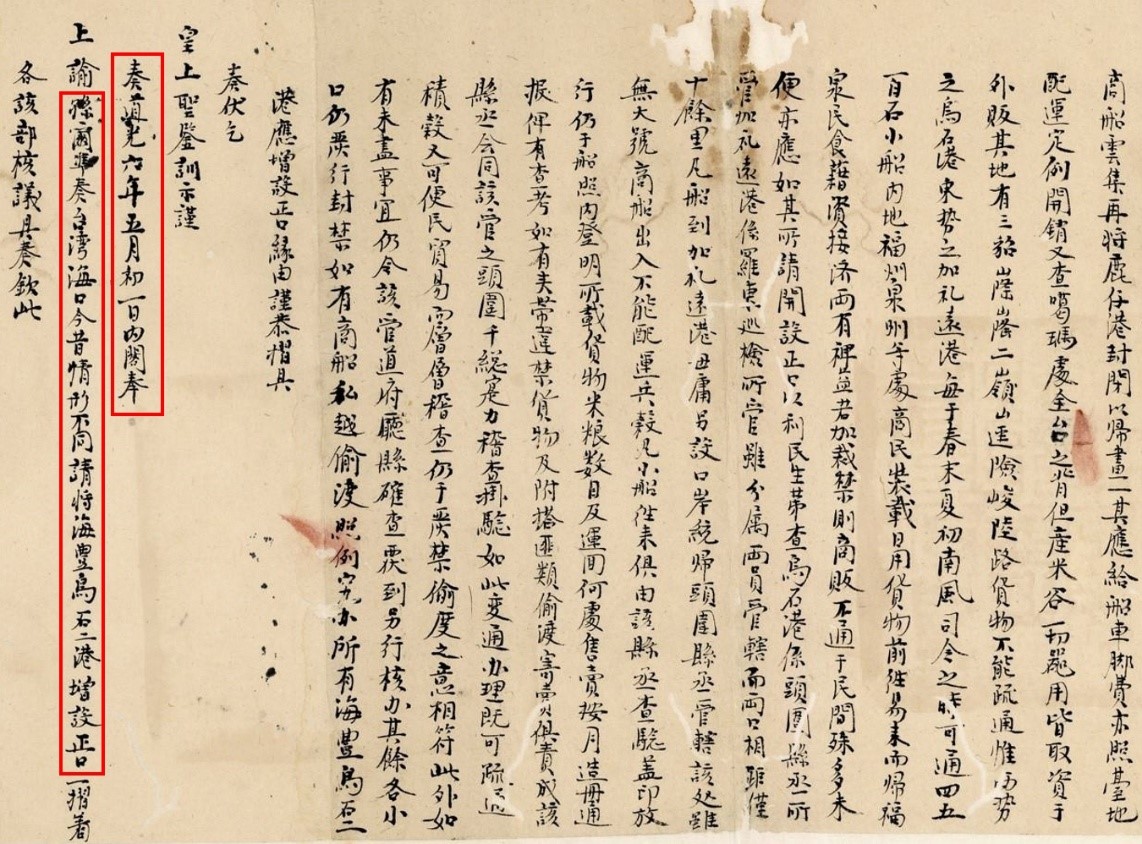 商船雲集再將鹿仔港封閉以歸畫一其應給船車脚費亦照臺地
配運定例開銷又查噶瑪處全台之背但產米谷一切器用皆取資于
外販其地有三貂嶐嶐二嶺山逕險峻陸路貨物不能疏通惟西势
之烏石港東势之加礼遠港每于春末夏初南風司令之時可通四五
百石小船内地福州泉州等處商民裝載日用貨物前徃易米而歸福
泉民食藉資接济两有裨益若加裁禁則商販不通于民間殊多未
便亦應如其所請開設正口以利民生苐查烏石港係頭圍縣丞所
管加礼遠港係羅東巡檢所管雖分属两員管轄而两口相距僅
十餘里凡船到加礼遠港毋庸另設口岸統歸頭圍縣丞管轄該处雖
無大號商船出入不能配運兵穀凡小船徃来俱由該縣丞查驗盖印放
行仍于船照内登明所載貨物米粮数目及運間何處售賣按月造冊通
报俾有查考如有夹帶違禁貨物及附搭匪類偷渡寄賣俱責成該
縣丞会同該管之頭圍千総寔力稽查掛驗如此变通办理既可疏通
積穀又可便民貿易而層層稽查仍于严禁偷度之意相符此外如
有未盡事宜仍令該管道府廳縣確查覆到另行核办其餘各小
口仍严行封禁如有商船私越偷渡照例究办所有海豐烏石二
港應增設正口緣由謹恭摺具
奏伏乞
皇上聖鑒訓示謹
奏道光六年五月初一日内閣奉
上諭孫爾準奏台湾海口今昔情形不同請将海豊烏石二港增設正口一摺着
各該部核議具奏欽此